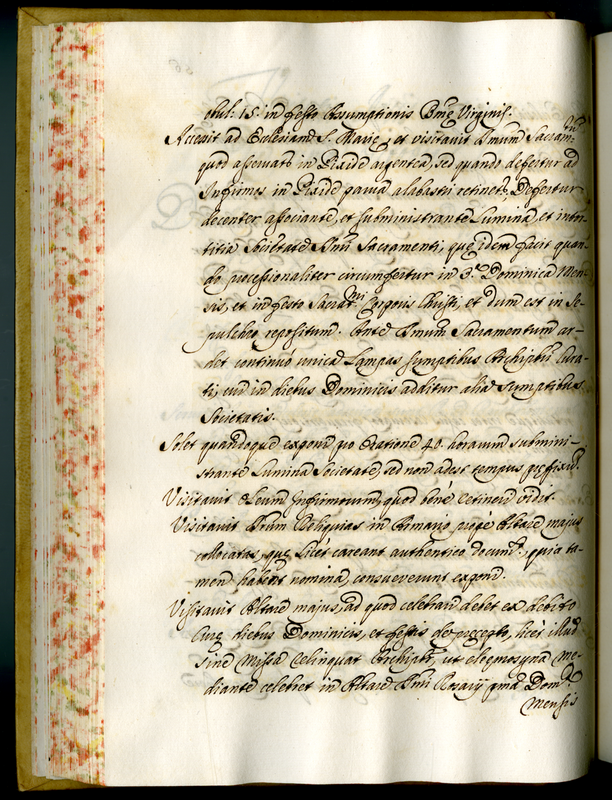 obul: 15. in festo Assumptionis Bmę Virginis.
Accessit ad Eclesiam S. Marię, et visitavit Smum Sacram.tū
quod asservatr in Pixide argentea, sed quando defertur ad
Infirmos in Pixide parva alabastri retinetr. Deffertur
decenter associante, et subministrante Lumina, et intor-
titia Societate Smi Sacramenti, quę idem facit quan-
do processionaliter circumfertur in 3.a Dominica Men-
sis, et in festo Sacrat.mi Corporis Christi, et dum est in Se-
pulchro repositum. Ante Smum Sacramentum ar-
det continuò unica Lampas sumptibus Archipttri
ti, cui in dictis Dominicis additur alia sumptibus
Societatis.
Solet quandoque exponi pro Oratione 40. horarum submini-
strante Lumina Societate, sed non adest tempus pręfixū.
Visitavit Oleum Infirmorum, quod bene retineri vidit.
Visitavit Stum Reliquias in Armario propè Altare majus
collocatas, quę licet careant authentico docum.to, quia ta-
men habent nomina, consueverunt exponi.
Visitavit Altare majus, ad quod celebrari debet ex debito
Curę dictis Dominicis, et festis de pręcepto, licet illud
sine Missa relinquat Archipbr, ut elęmosyna me-
diante celebret in Altare Smi Rosarij pma Dom.ca
Mensis